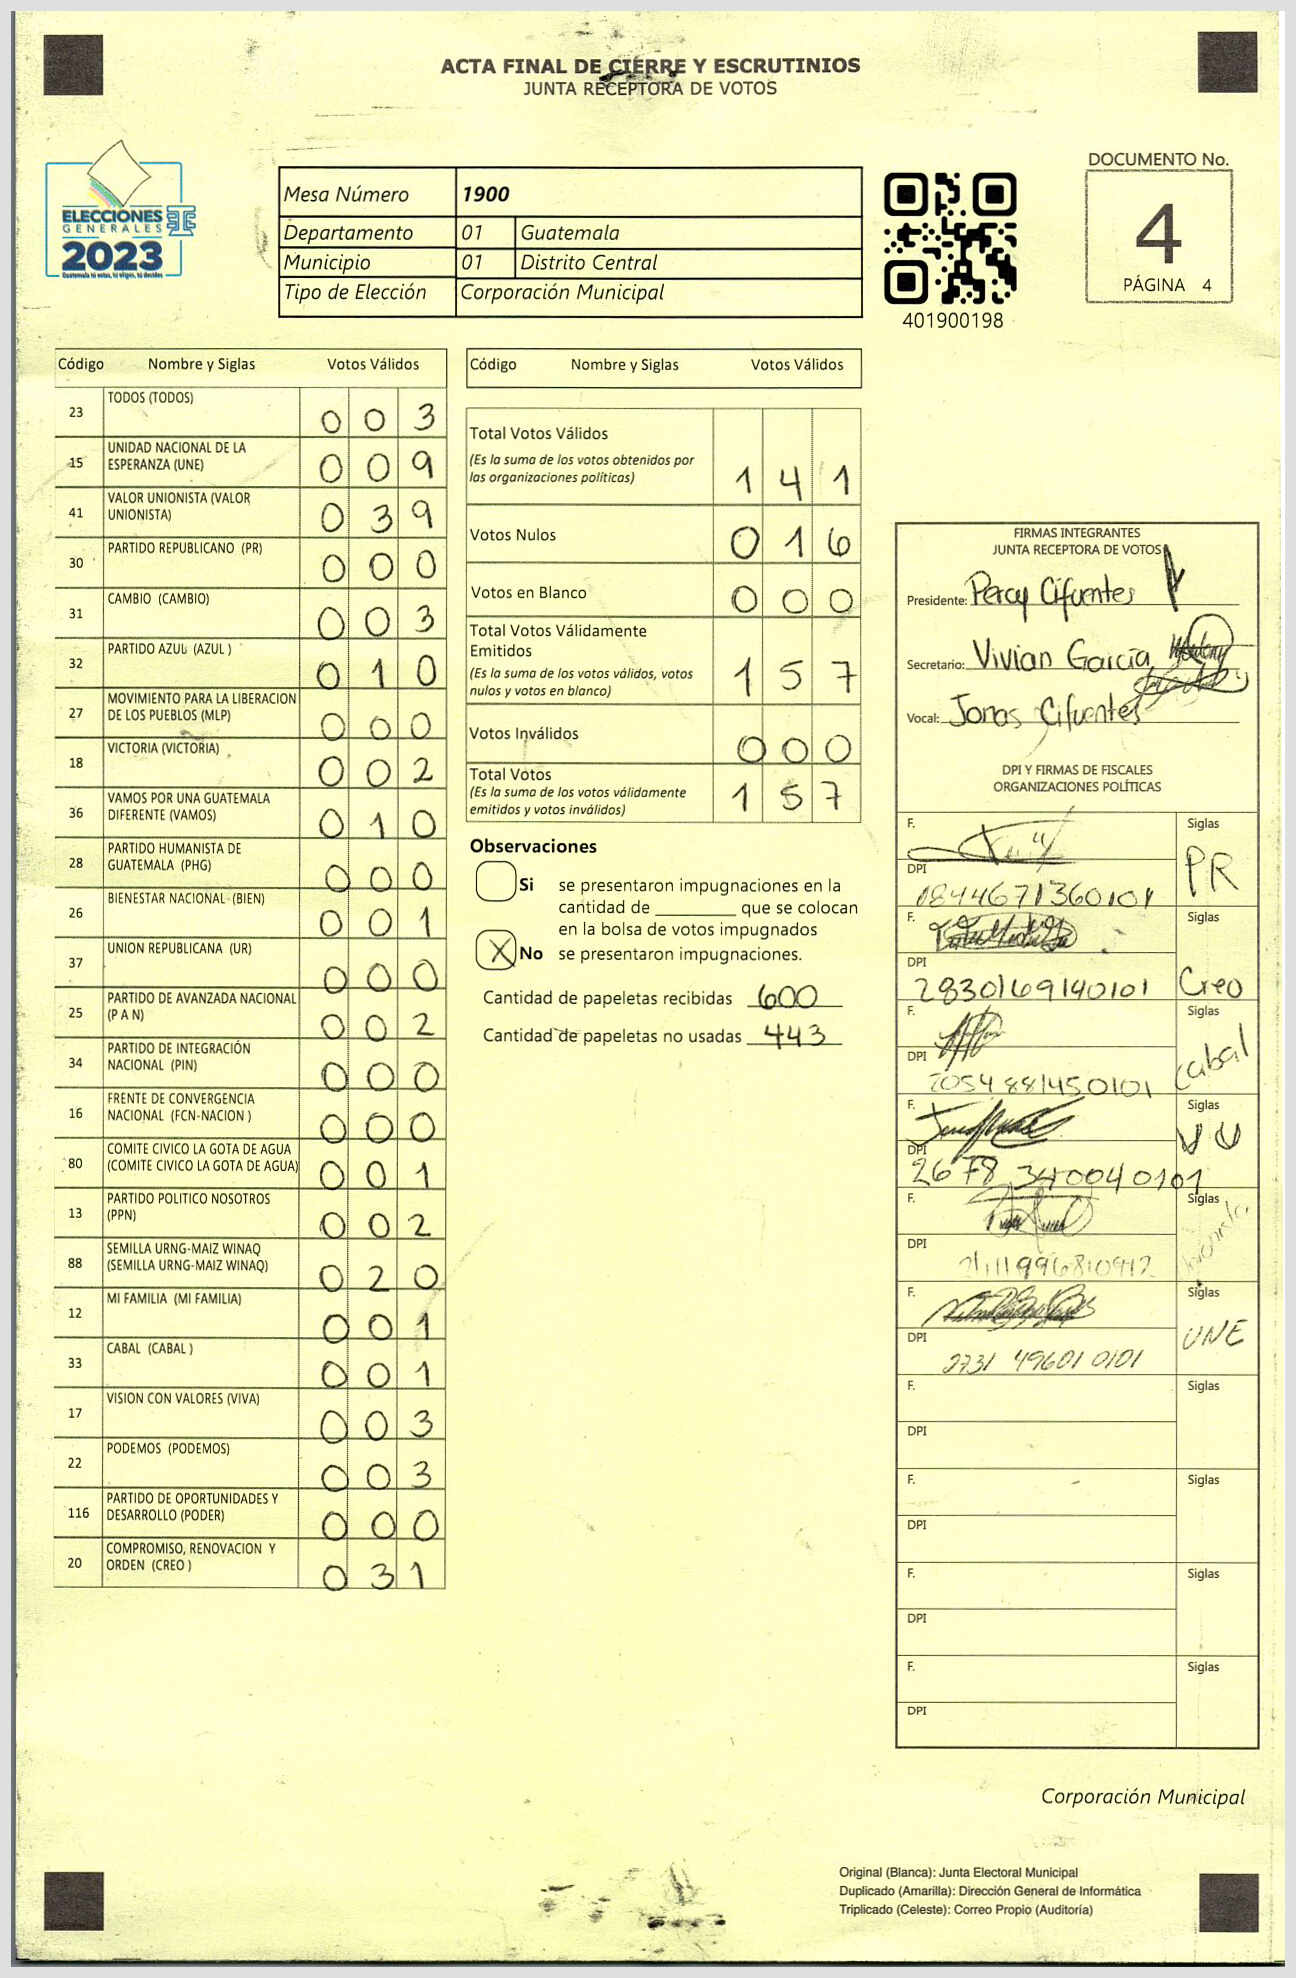 ACTA FINAL DE CIERRE Y ESCRUTINIOS
JUNTA RECEPTORA DE VOTOS
ELECCIONES
GENERALES
2023
Guatemala tú votas, tú eliges, tú decides
Mesa Número 1900
Departamento 01 Guatemala
Municipio 01 Distrito Central
Tipo de Elección Corporación Municipal
401900198
DOCUMENTO No.
4
PÁGINA 4
Código Nombre y Siglas Votos Válidos
23 TODOS (TODOS) 0 0 3
15 UNIDAD NACIONAL DE LA ESPERANZA (UNE) 0 0 9
41 VALOR UNIONISTA (VALOR UNIONISTA) 0 3 9
30 PARTIDO REPUBLICANO (PR) 0 0 0
31 CAMBIO (CAMBIO) 0 0 3
32 PARTIDO AZUL (AZUL ) 0 1 0
27 MOVIMIENTO PARA LA LIBERACION DE LOS PUEBLOS (MLP) 0 0 0
18 VICTORIA (VICTORIA) 0 0 2
36 VAMOS POR UNA GUATEMALA DIFERENTE (VAMOS) 0 1 0
28 PARTIDO HUMANISTA DE GUATEMALA (PHG) 0 0 0
26 BIENESTAR NACIONAL (BIEN) 0 0 1
37 UNION REPUBLICANA (UR) 0 0 0
25 PARTIDO DE AVANZADA NACIONAL (P A N) 0 0 2
34 PARTIDO DE INTEGRACIÓN NACIONAL (PIN) 0 0 0
16 FRENTE DE CONVERGENCIA NACIONAL (FCN-NACION ) 0 0 0
80 COMITE CIVICO LA GOTA DE AGUA (COMITE CIVICO LA GOTA DE AGUA) 0 0 1
13 PARTIDO POLITICO NOSOTROS (PPN) 0 0 2
88 SEMILLA URNG-MAIZ WINAQ (SEMILLA URNG-MAIZ WINAQ) 0 2 0
12 MI FAMILIA (MI FAMILIA) 0 0 1
33 CABAL (CABAL ) 0 0 1
17 VISION CON VALORES (VIVA) 0 0 3
22 PODEMOS (PODEMOS) 0 0 3
116 PARTIDO DE OPORTUNIDADES Y DESARROLLO (PODER) 0 0 0
20 COMPROMISO, RENOVACION Y ORDEN (CREO ) 0 3 1
Código Nombre y Siglas Votos Válidos
Total Votos Válidos 1 4 1
(Es la suma de los votos obtenidos por
las organizaciones políticas)
Votos Nulos 0 1 6
Votos en Blanco 0 0 0
Total Votos Válidamente
Emitidos 1 5 7
(Es la suma de los votos válidos, votos
nulos y votos en blanco)
Votos Inválidos 0 0 0
Total Votos 1 5 7
(Es la suma de los votos válidamente
emitidos y votos inválidos)
Observaciones
Si se presentaron impugnaciones en la
cantidad de ________ que se colocan
en la bolsa de votos impugnados
X No se presentaron impugnaciones.
Cantidad de papeletas recibidas 600
Cantidad de papeletas no usadas 443
FIRMAS INTEGRANTES
JUNTA RECEPTORA DE VOTOS
Presidente: Percy Cifuentes
Secretario: Vivian García
Vocal: Jonas Cifuentes
DPI Y FIRMAS DE FISCALES
ORGANIZACIONES POLÍTICAS
F. Siglas
PR
DPI
F. Siglas
DPI 2830169140101 Creo
F. Siglas
DPI Cabal
F. Siglas
DPI
2678 340040101
F. Siglas
DPI
F. Siglas
UNE
DPI 2731 49601 0101
F. Siglas
DPI
F. Siglas
DPI
F. Siglas
DPI
F. Siglas
DPI
Corporación Municipal
Original (Blanca): Junta Electoral Municipal
Duplicado (Amarilla): Dirección General de Informática
Triplicado (Celeste): Correo Propio (Auditoría)